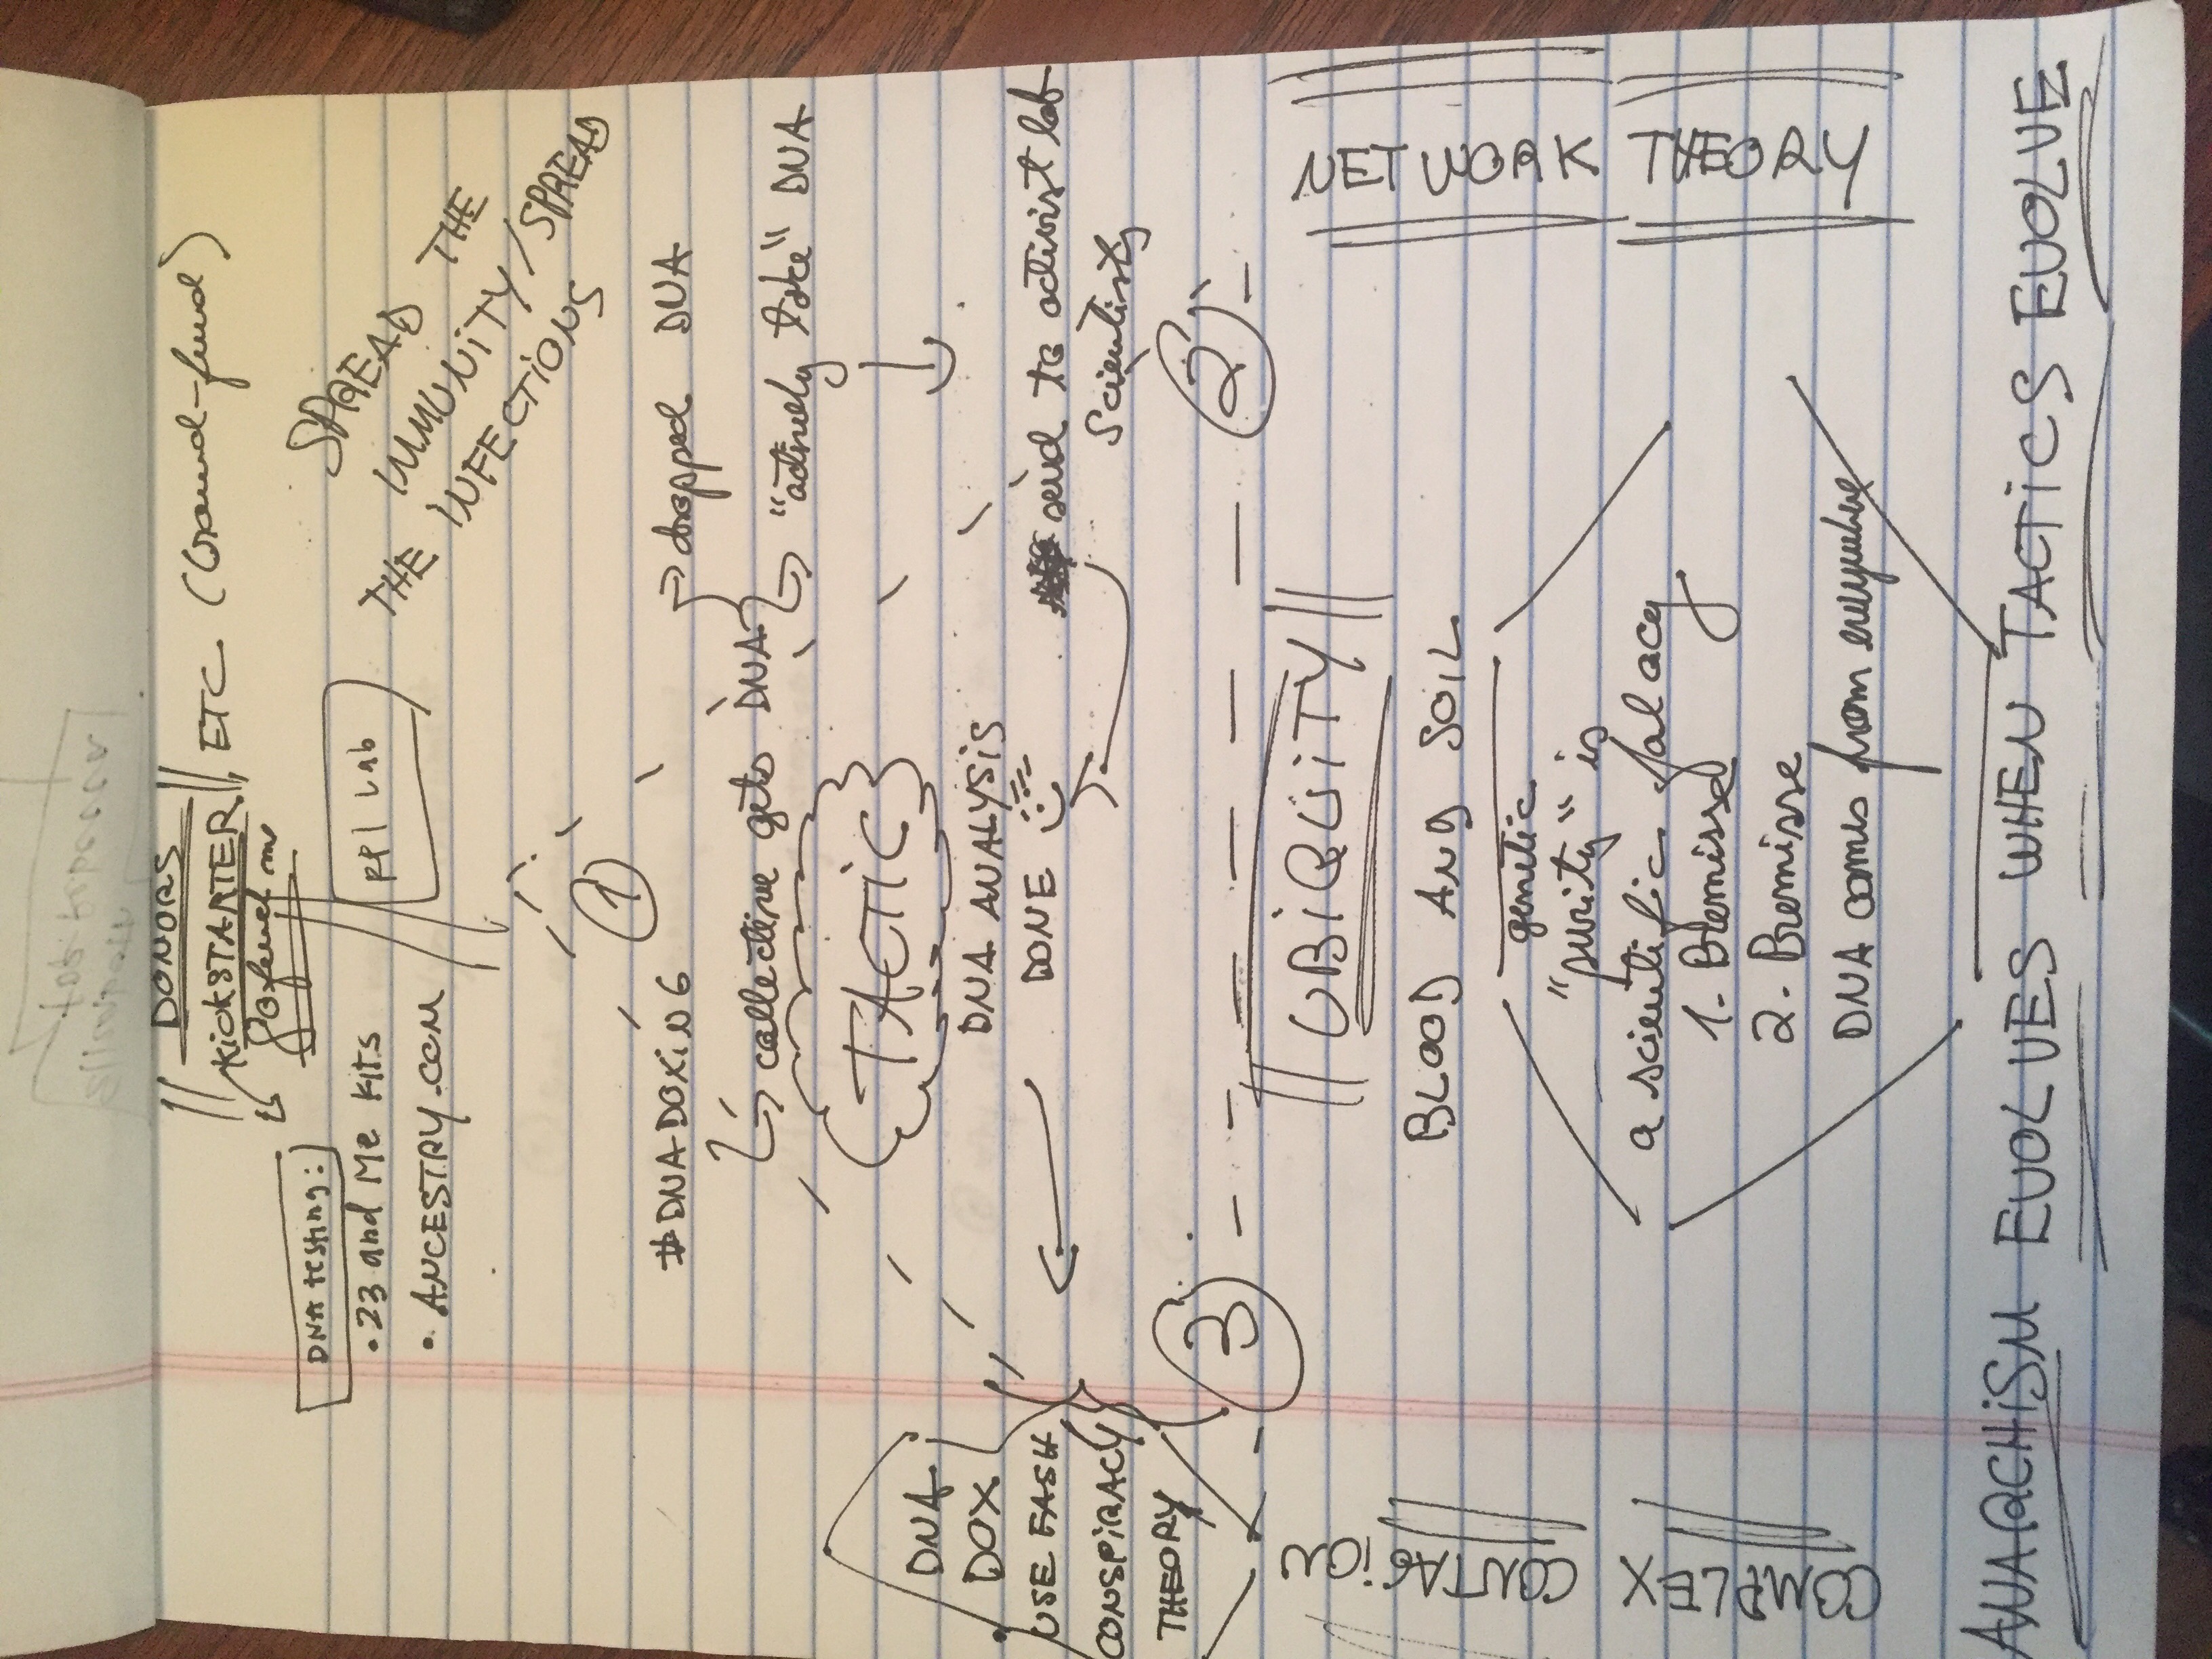 DONORS
KICKSTARTER, ETC (Crowd-fund)
GoFund me
DNA testing:
• 23 and Me Kits
• ANCESTRY.COM
ppl lab
SPREAD THE
IMMUNITY/SPREAD
THE INFECTIONS
1
#DNA-DOXING
collective gets DNA
dropped DNA
"actively take" DNA
TACTIC
DNA ANALYSIS
DONE
send to activist lab
Scientists
2
3
DNA
DOX
USE FASH
CONSPIRACY
THEORY
UBIQUITY
NETWORK THEORY
BLOOD AND SOIL
genetic
"purity" is
a scientific falacy
1.
2.
DNA coms from everywhere
ANARCHISM EVOLVES WHEN TACTICS EVOLVE